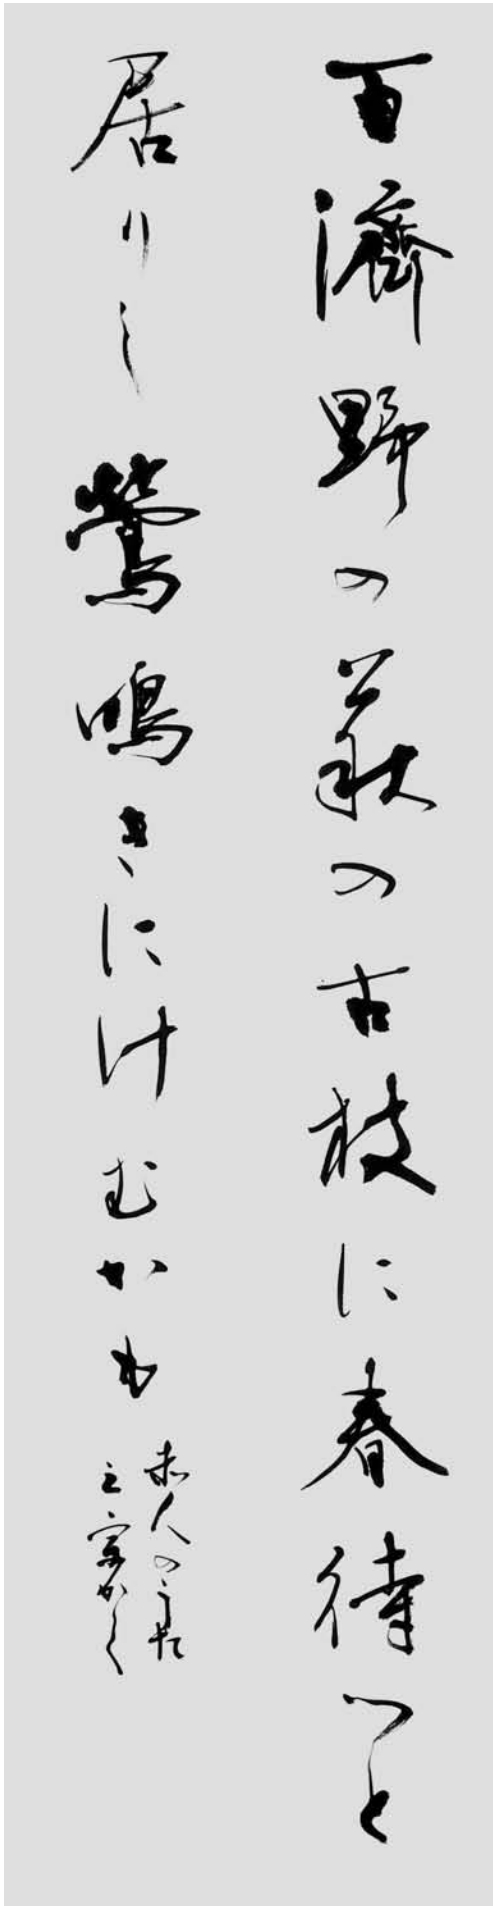 百濟野の萩の古枝に春待つと
居りし鶯鳴きにけむかも
赤人のうた
かく